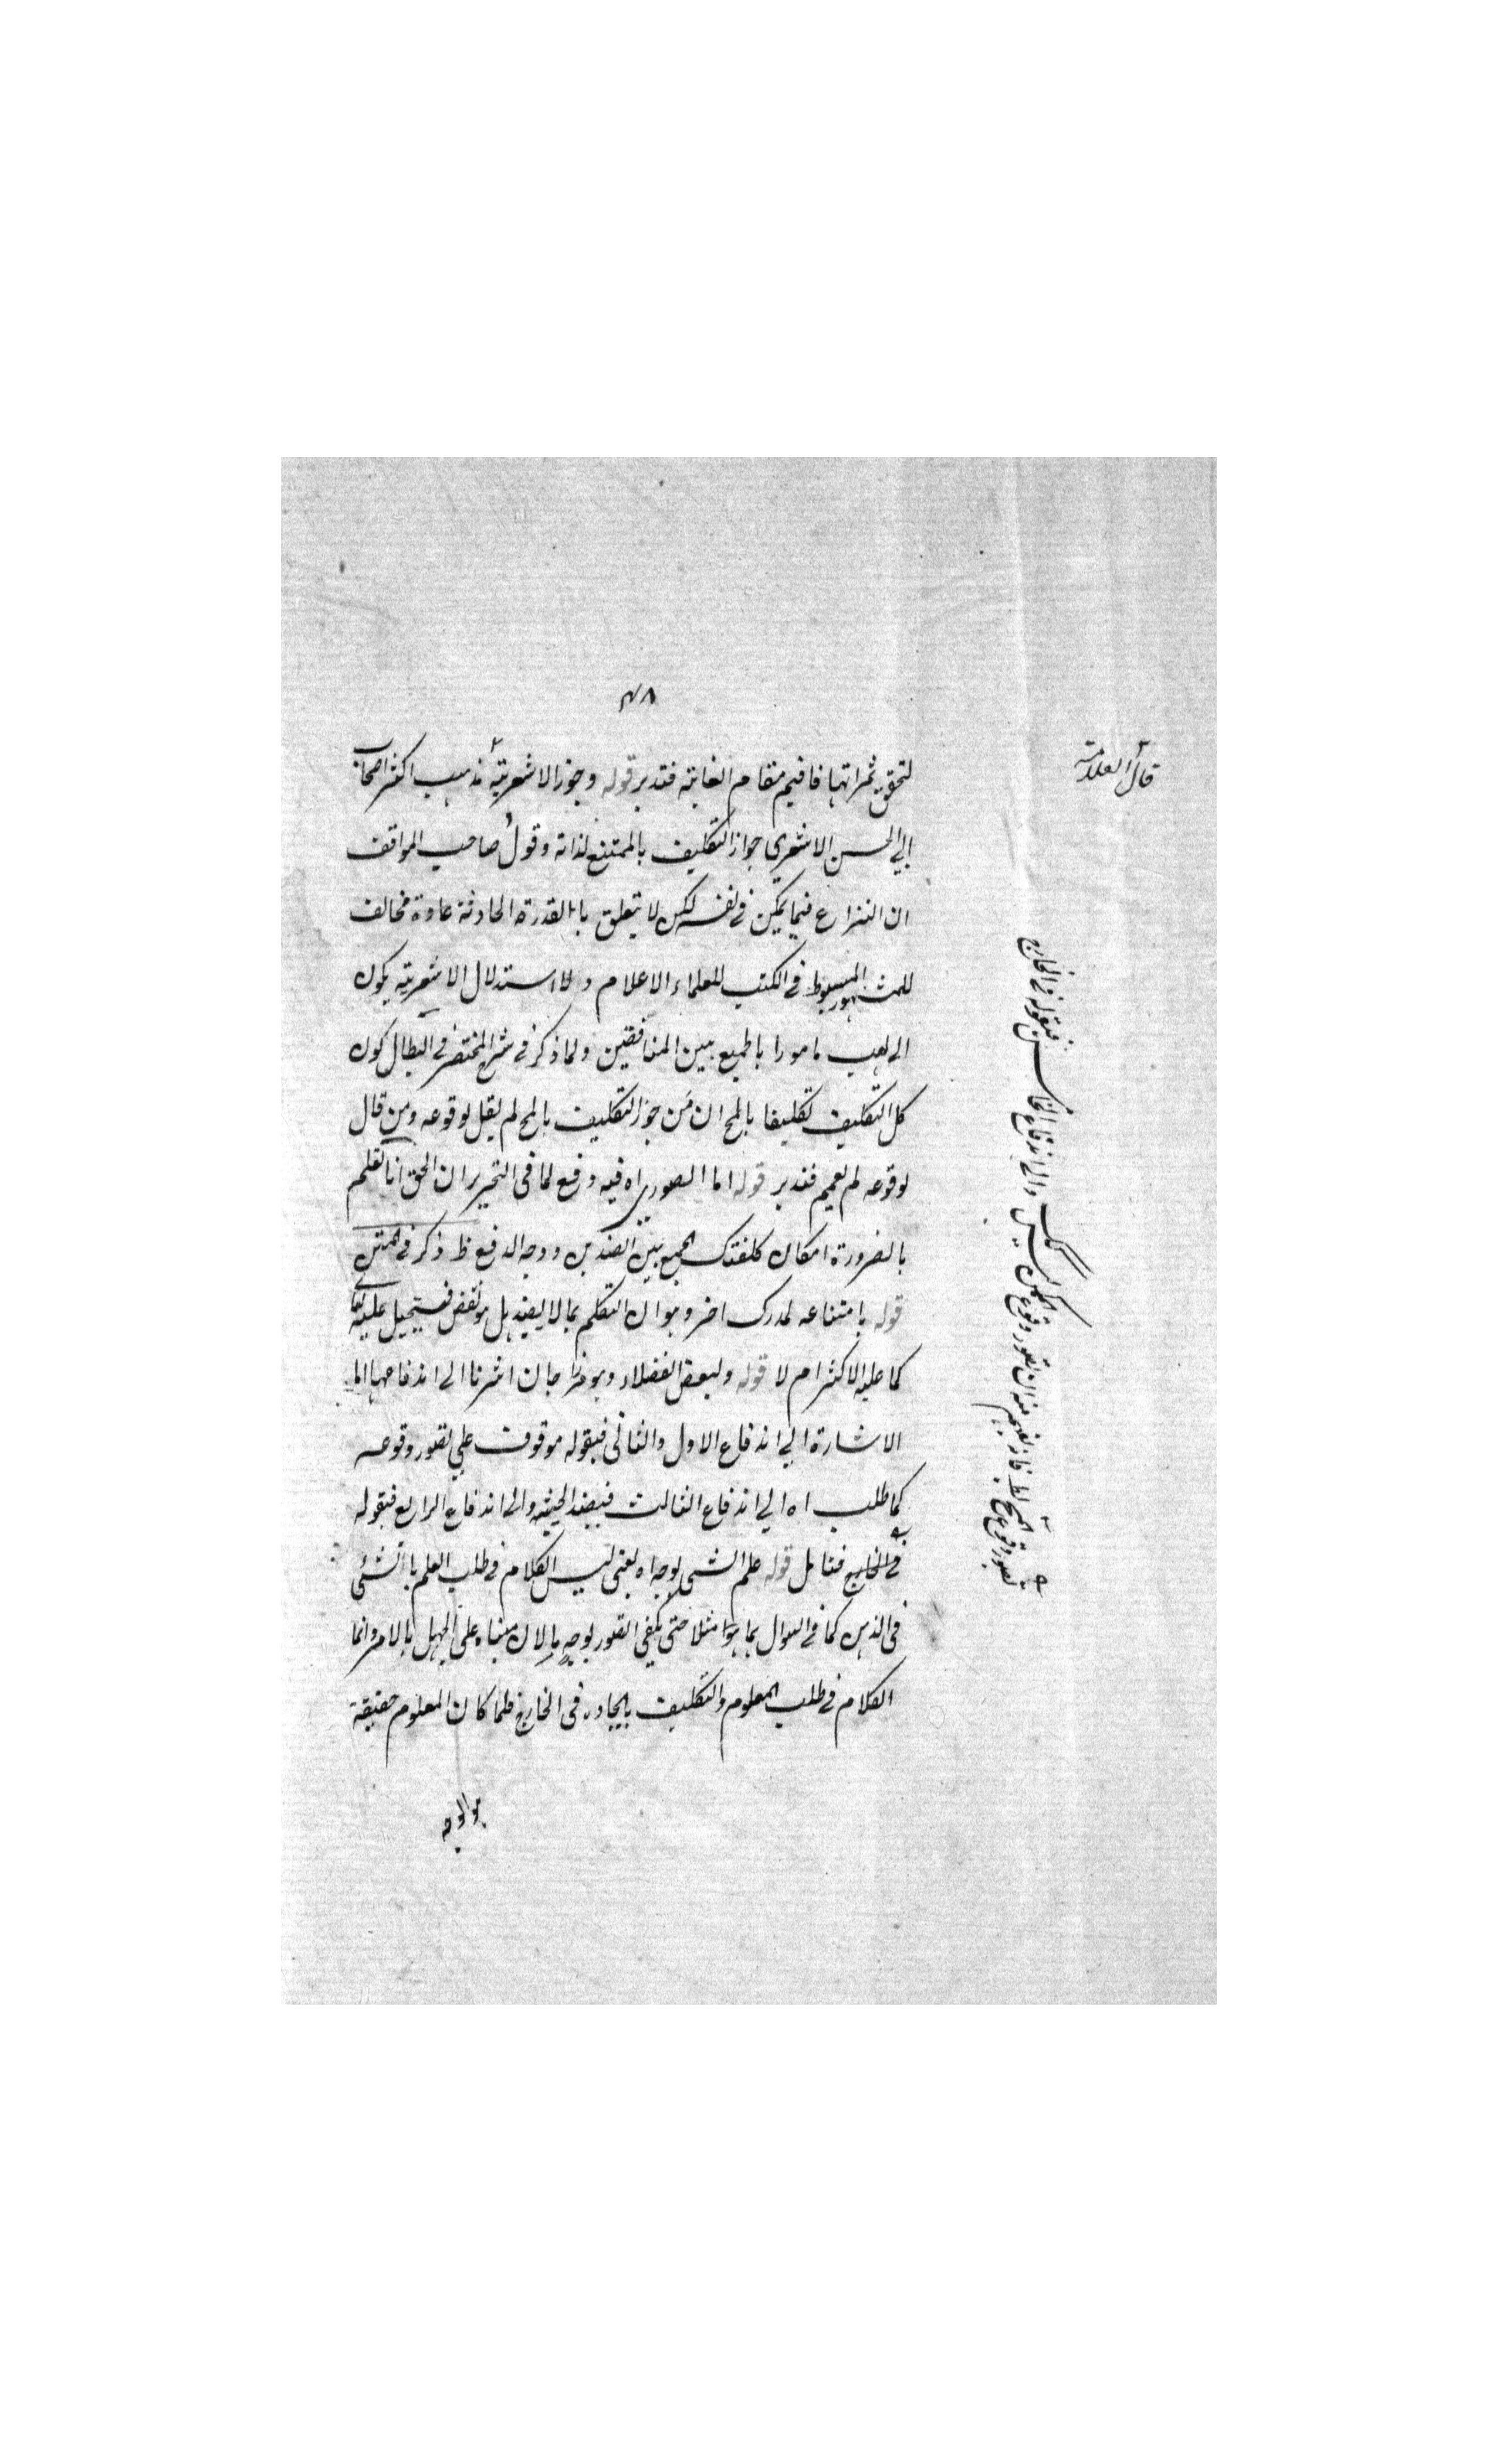 ٤٨
قال العلامة
لتحقق ثمراتها فاقيم مقام الغاية فتدبر قوله وجوز الاشعرية مذهب اكثر اصحاب
ابي الحسن الاشعري جواز التكليف بالممتنع لذاته وقول صاحب المواقف
ان النزاع فيما يمكن في نفسه لكن لا يتعلق به القدرة الحادثة عادة مخالف
للمشهور المبسوط في الكتب للعلماء الاعلام ولاستدلال الاشعرية بكون
ابي لهب مامورا بالجمع بين المتناقضين ولما ذكر في شرح المختصر في ابطال كون
كل التكليف تكليفا بالمح ان من جوز التكليف بالمح لم يقل بوقوعه ومن قال
بوقوعه لم يعمم فتدبر قوله اما الصوري اه فيه دفع لما في التحرير ان الحق انا نعلم
بالضرورة امكان كلفتك الجمع بين الضدين ووجه الدفع ظ ذكر في المتن
قوله بامتناعه لمدرك اخر وهو ان التكلم بما لا يفيد هل هو نقص فيستحيل عليه تعا
كما عليه الاكثر ام لا قوله ولبعض الفضلاء وهو مرزا جان اشرنا الى اندفاعها اما
الاشارة الى اندفاع الاول والثاني فبقوله موقوف على تصور وقوعه
كما طلب اه الى اندفاع الثالث فبقيد الحيثية والى اندفاع الرابع فبقوله
في الخارج فتامل قوله علم الشي بوجه اه يعني ليس الكلام في طلب العلم بالشئ
في الذهن كما في السوال بما هو مثلا حتى يكفي التصور بوجه ما لان مبناه على الجهل بالامر وانما
الكلام في طلب المعلوم والتكليف بايجاده في الخارج فلما كان المعلوم حقيقة
هو الوجه